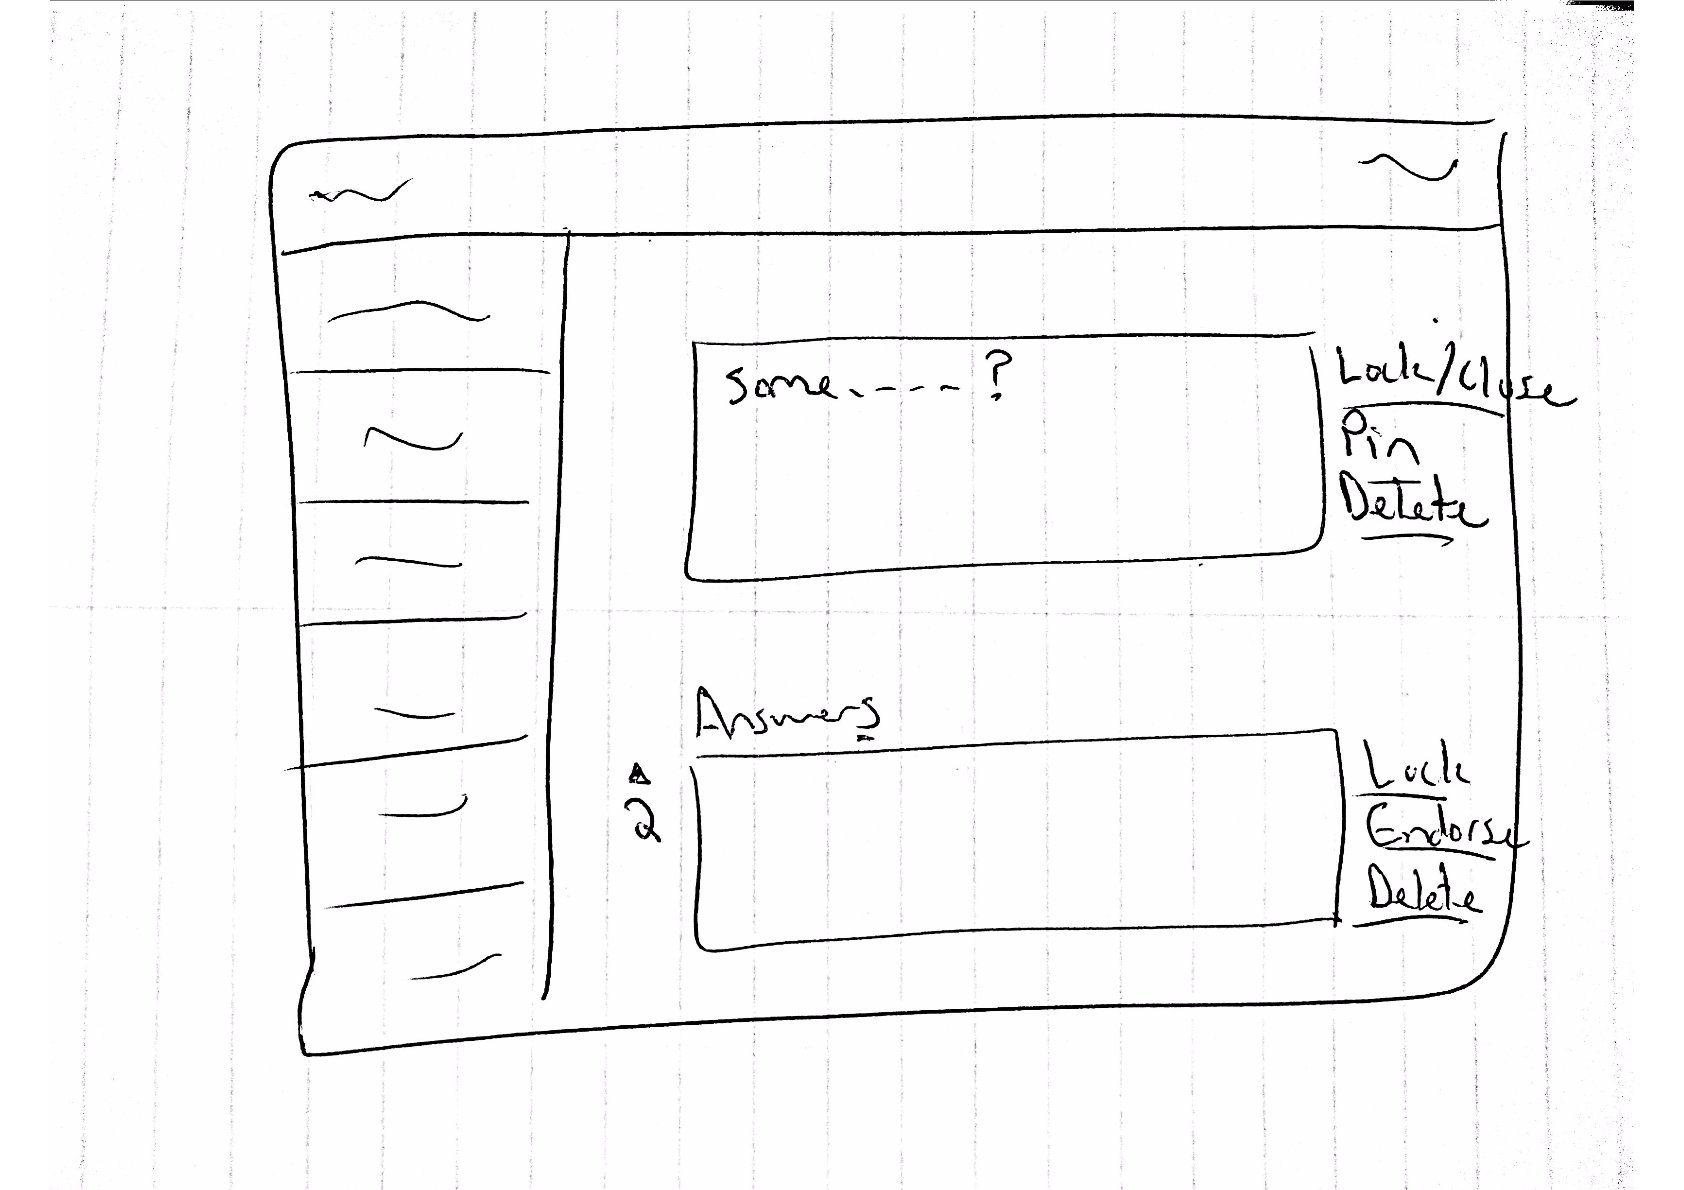 Some ---- ?
Lock/Close
Pin
Delete
Answers
2
Lock
Endorse
Delete